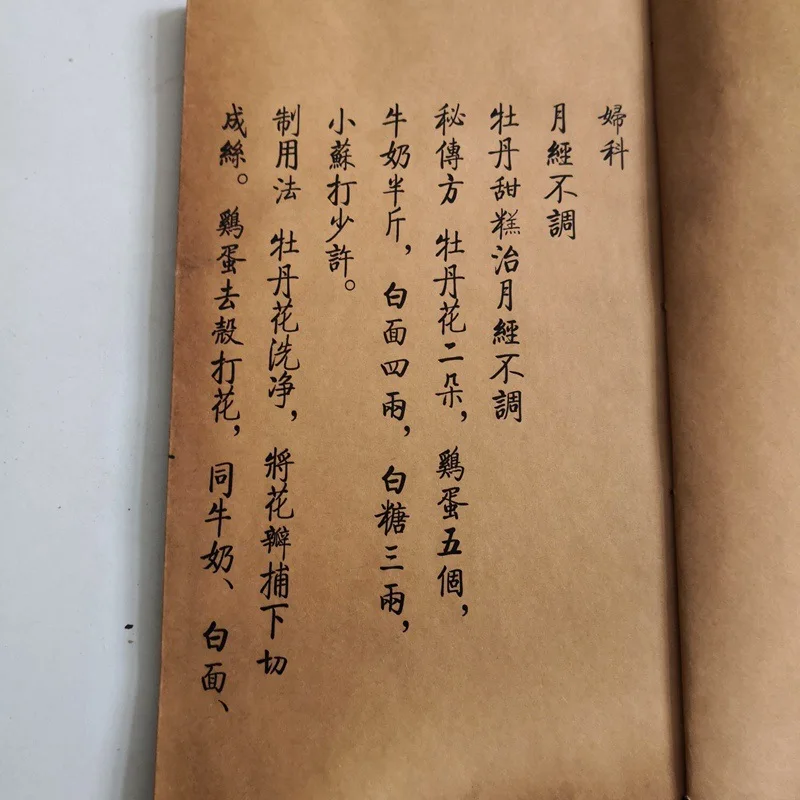 婦科
月經不調
牡丹甜糕治月經不調
秘傳方 牡丹花二朵，鷄蛋五個，
牛奶半斤，白面四兩，白糖三兩，
小蘇打少許。
制用法 牡丹花洗净，將花瓣捕下切
成絲。鷄蛋去殼打花，同牛奶、白面、